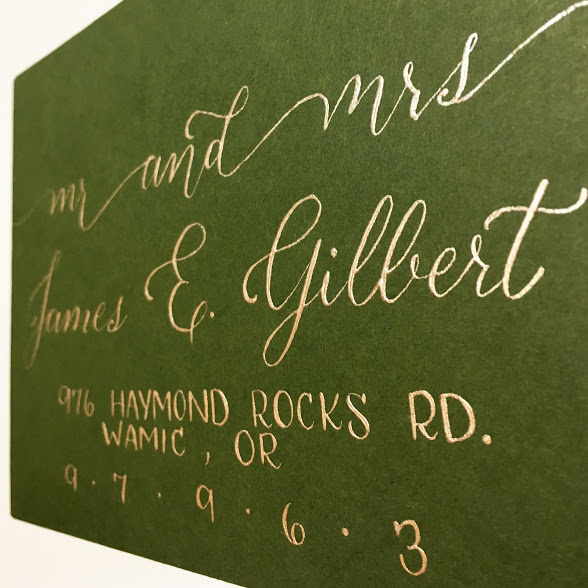 mr and mrs
James E. Gilbert
976 HAYMOND ROCKS RD.
WAMIC, OR
9 · 7 · 9 · 6 · 3